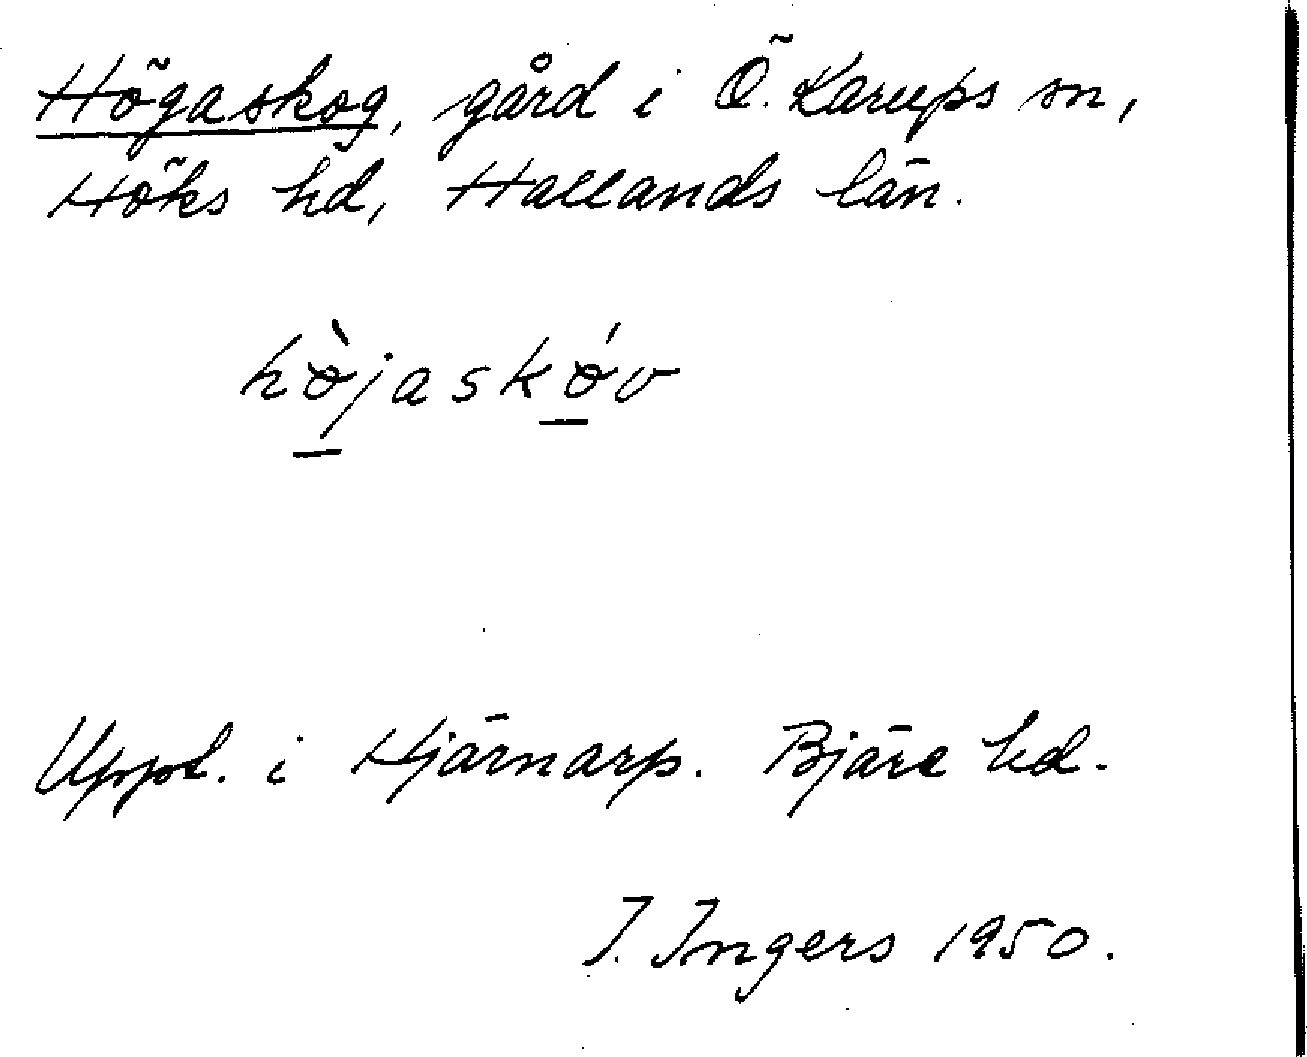 Högaskog, gård i Ö. Karups sn,
Höks hd, Hallands län.
hø̀jaskǿv
Uppt. i Hjärnarp. Bjäre hd.
I. Ingers 1950.